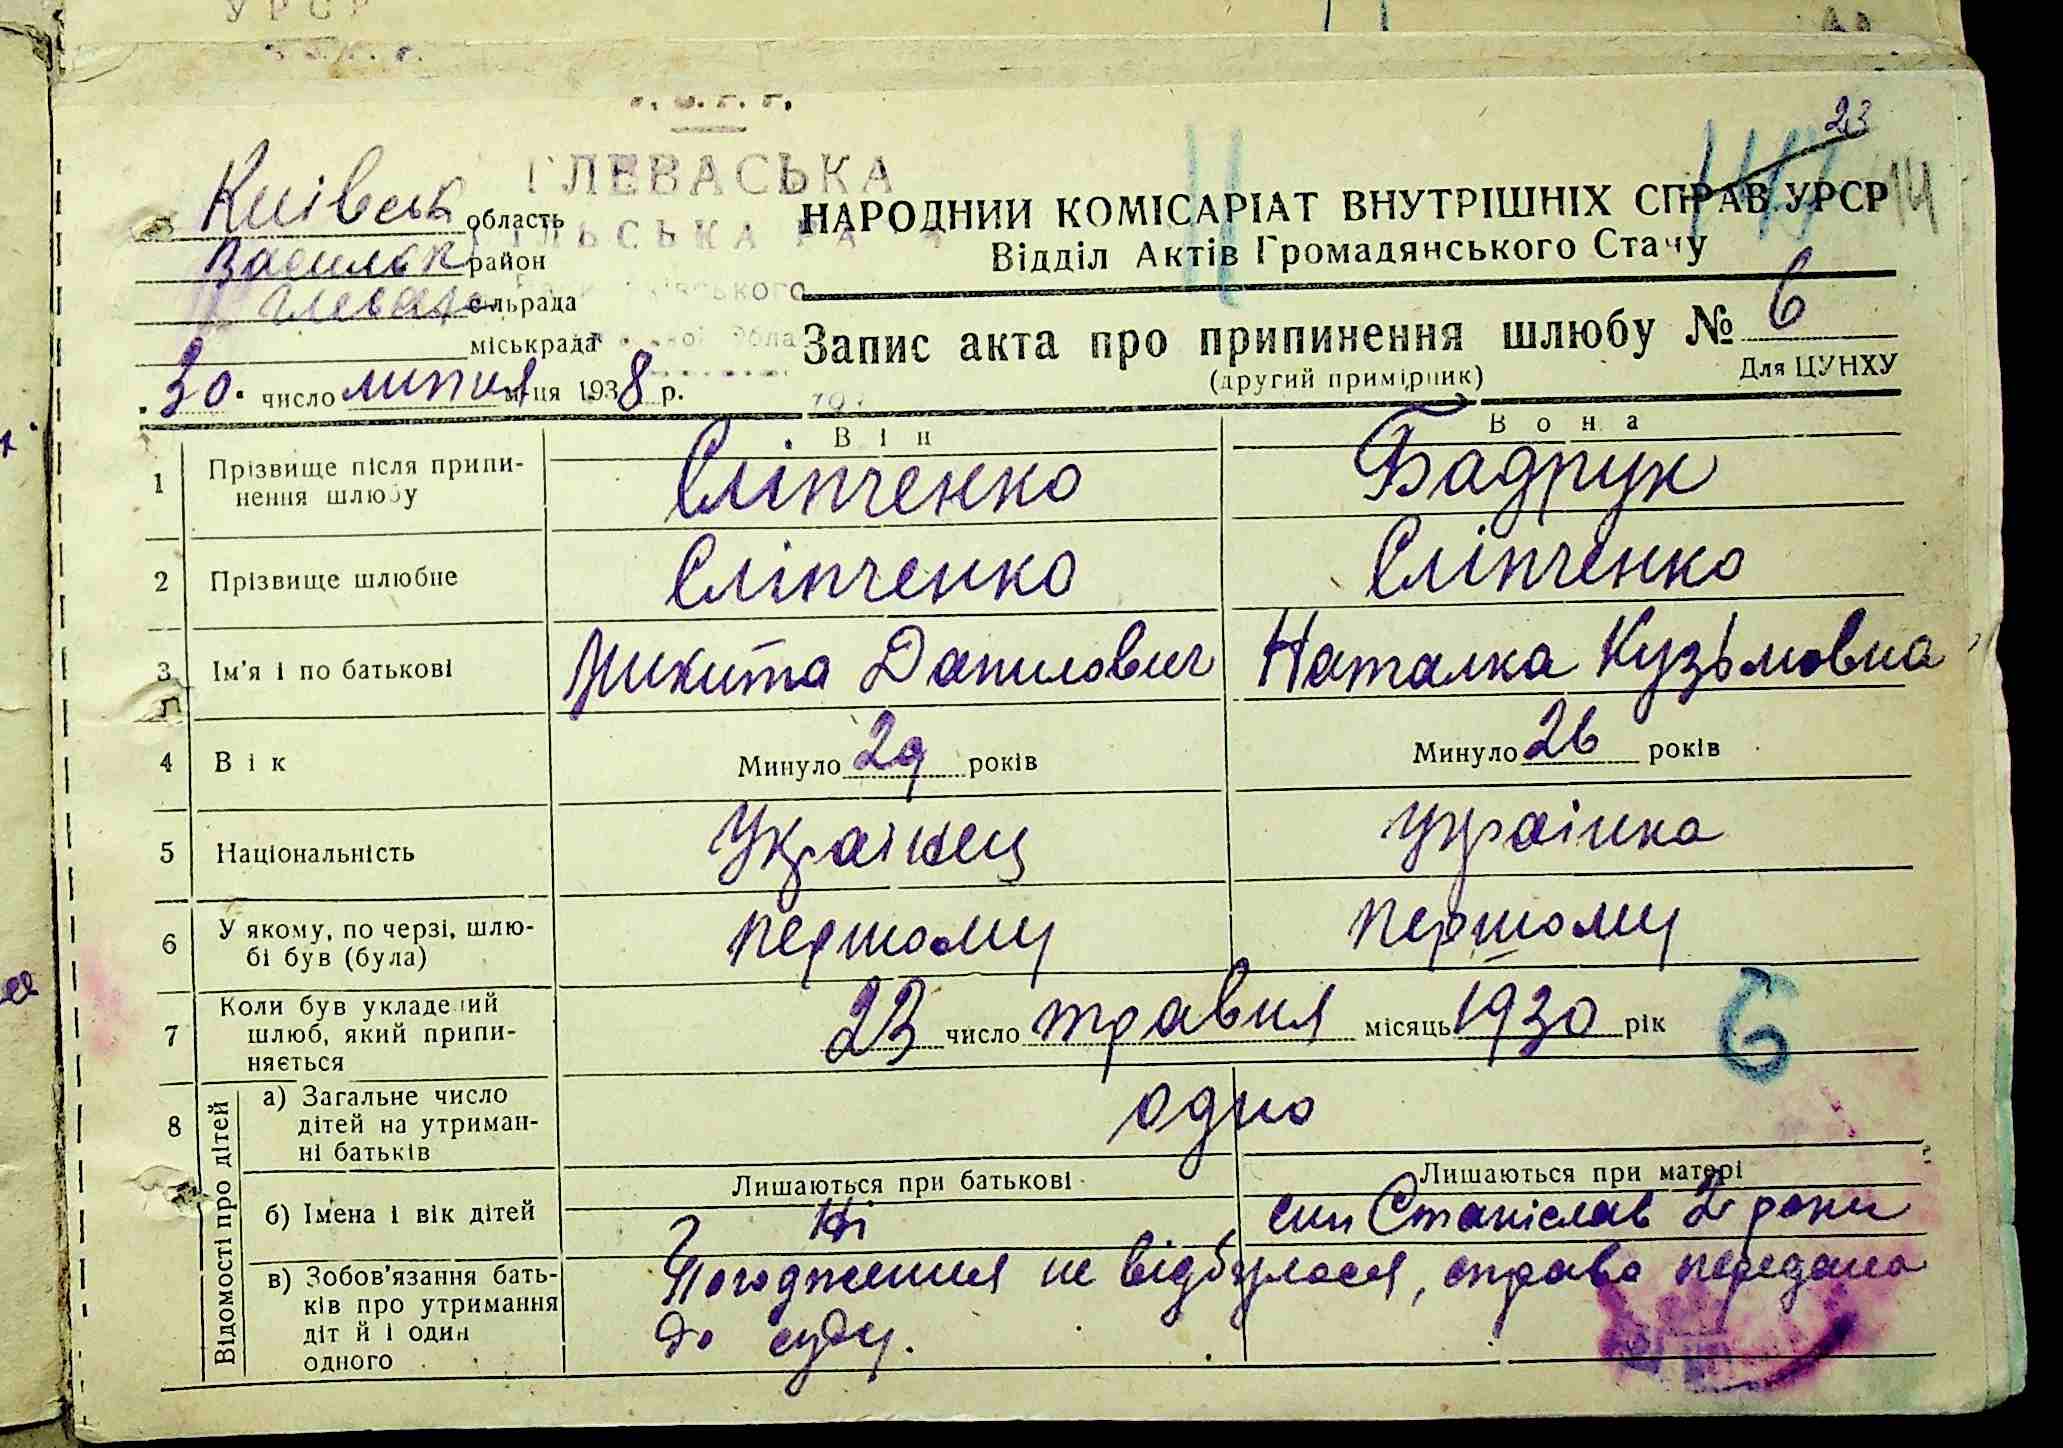 УРСР
23
ГЛЕВАСЬКА
14
Київськ область
СІЛЬСЬКА РА
НАРОДНИЙ КОМІСАРІАТ ВНУТРІШНІХ СПРАВ УРСР
Васильк район
Відділ Актів Громадянського Стану
Глеваха сільрада
міськрада
Запис акта про припинення шлюбу № 6
(другий примірник)
Для ЦУНХУ
30 число липня м-ця 1938 р.
Він
Вона
1 Прізвище після припинення шлюбу
Сліпченко
Бадрук
2 Прізвище шлюбне
Сліпченко
Сліпченко
3 Ім'я і по батькові
Микита Данилович
Наталка Кузьмовна
4 Вік
Минуло 29 років
Минуло 26 років
5 Національність
Українец
Українка
6 У якому, по черзі, шлю-
бі був (була)
першому
першому
7 Коли був укладений
шлюб, який припи-
няється
23 число травня місяць 1930 рік
6
8 Відомості про дітей
а) Загальне число
дітей на утриман-
ні батьків
одно
Лишаються при батькові
Лишаються при матері
б) Імена і вік дітей
Ні
син Станіслав 2 роки
в) Зобов'язання бать-
ків про утримання
дітей і один
одного
Погодження не відбулося, справа передана
до суду.